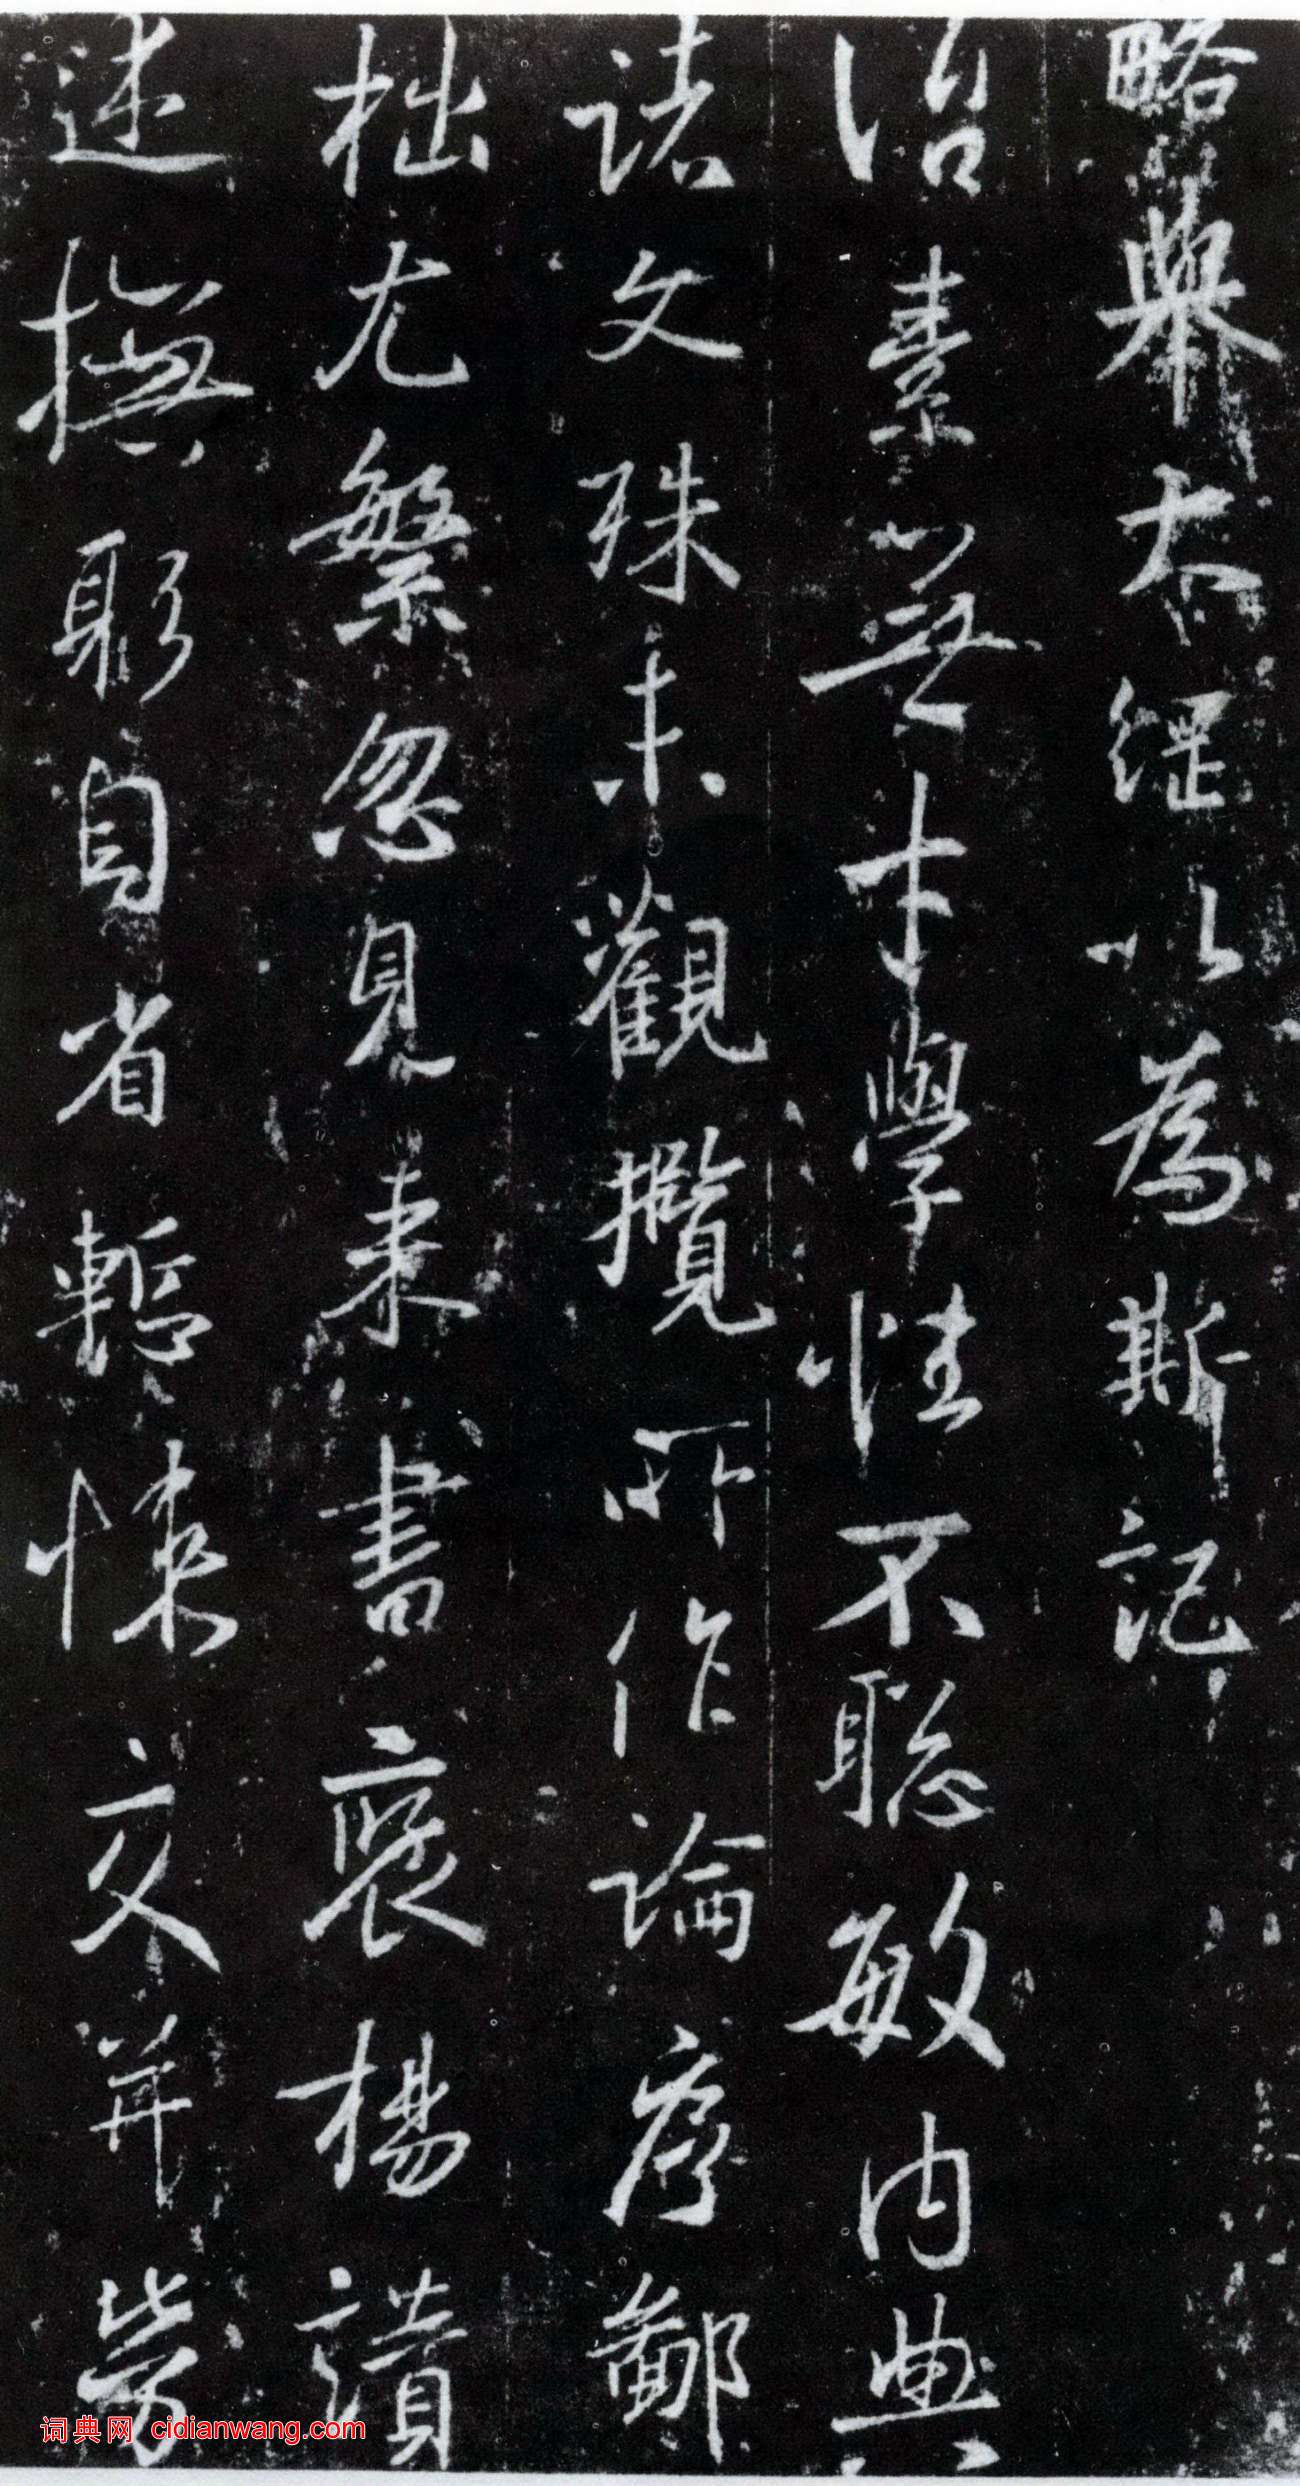 略舉大綱以為斯記
治素無才學性不聰敏內典
諸文殊未觀攬所作論序鄙
拙尤繁忽見來書褒揚讚
述撫躬自省慙悚交并勞
词典网 cidianwang.com